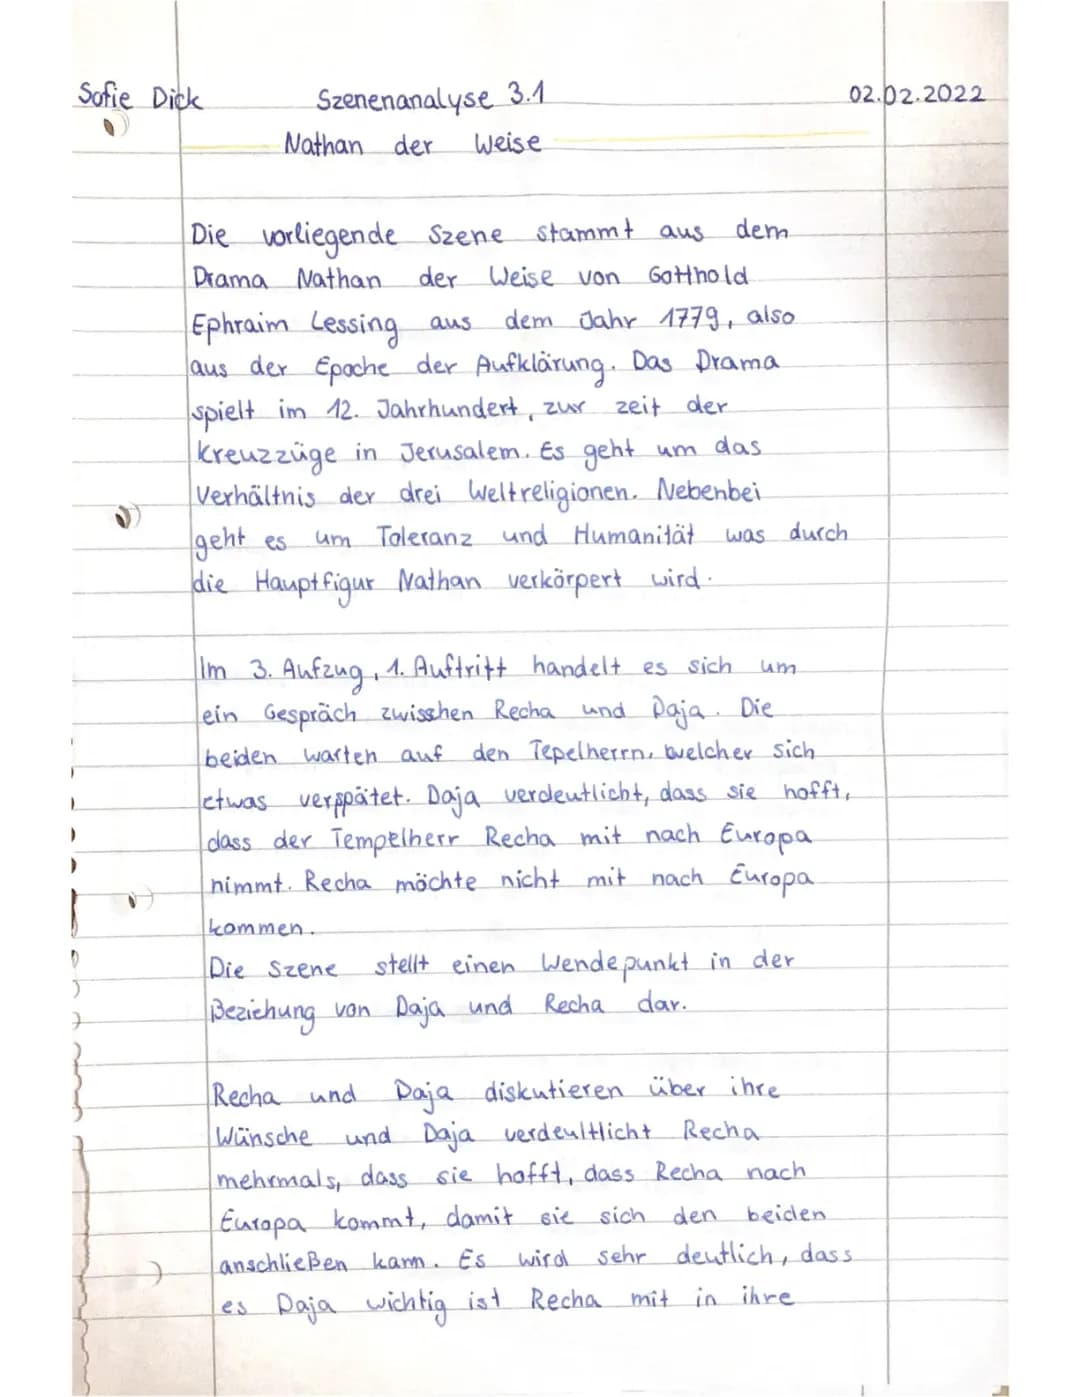 Sofie Dick Szenenanalyse 3.1 02.02.2022
Nathan der Weise
Die vorliegende Szene stammt aus dem
Drama Nathan der Weise von Gotthold
Ephraim Lessing aus dem Jahr 1779, also
aus der Epoche der Aufklärung. Das Drama
spielt im 12. Jahrhundert, zur zeit der
Kreuzzüge in Jerusalem. Es geht um das
Verhältnis der drei Weltreligionen. Nebenbei
geht es um Toleranz und Humanität was durch
die Hauptfigur Nathan verkörpert wird.
Im 3. Aufzug, 1. Auftritt handelt es sich um
ein Gespräch zwisshen Recha und Daja. Die
beiden warten auf den Tepelherrn, welcher sich
etwas verspätet. Daja verdeutlicht, dass sie hofft,
dass der Tempelherr Recha mit nach Europa
nimmt. Recha möchte nicht mit nach Europa
kommen.
Die Szene stellt einen Wendepunkt in der
Beziehung von Daja und Recha dar.
Recha und Daja diskutieren über ihre
Wünsche und Daja verdeultlicht Recha
mehrmals, dass sie hofft, dass Recha nach
Europa kommt, damit sie sich den beiden
anschließen kann. Es wird sehr deutlich, dass
es Daja wichtig ist Recha mit in ihre